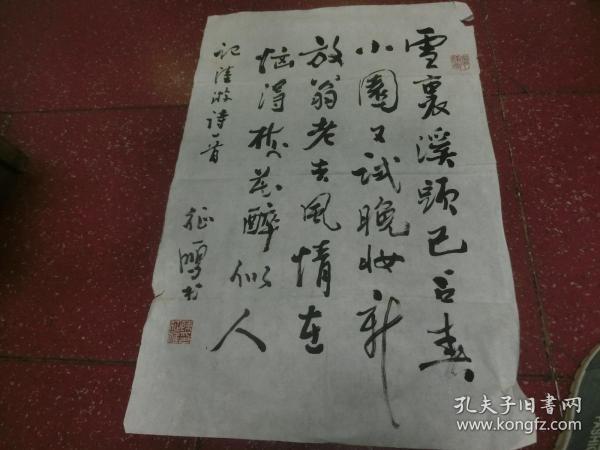 雪裏溪頭已占春
小園又試晚妝新
放翁老去風情在
恼得梅花醉似人
记陆游诗一首
征鸿书
孔夫子旧书网
www.kongfz.com